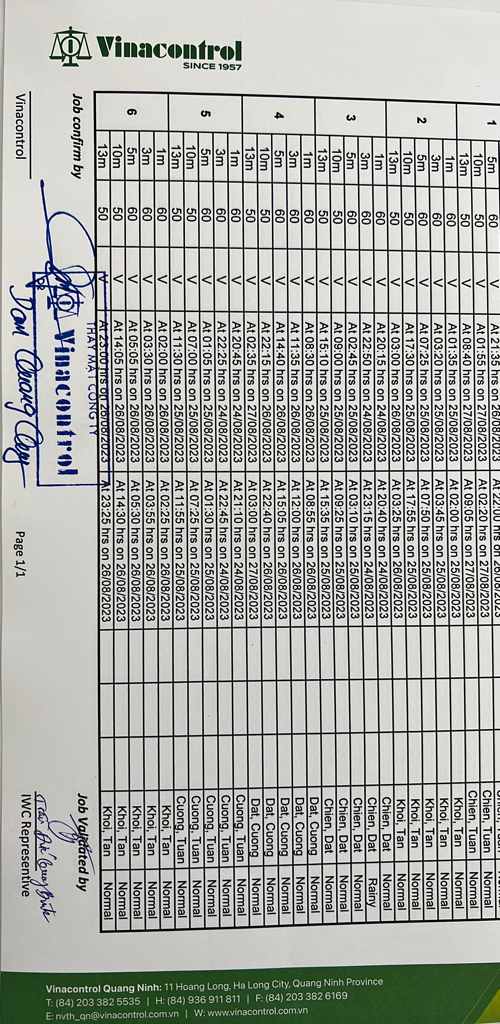 Vinacontrol
SINCE 1957
1 5m 60 V At 21:35 hrs on 26/08/2023 At 22:00 hrs on 26/08/2023 Chien, Tuan Normal
10m 50 V At 01:55 hrs on 27/08/2023 At 02:20 hrs on 27/08/2023 Chien, Tuan Normal
13m 50 V At 08:40 hrs on 27/08/2023 At 09:05 hrs on 27/08/2023 Chien, Tuan Normal
2 1m 60 V At 01:35 hrs on 26/08/2023 At 02:00 hrs on 26/08/2023 Khoi, Tan Normal
3m 60 V At 03:20 hrs on 26/08/2023 At 03:45 hrs on 26/08/2023 Khoi, Tan Normal
5m 60 V At 07:25 hrs on 25/08/2023 At 07:50 hrs on 25/08/2023 Khoi, Tan Normal
10m 50 V At 17:30 hrs on 25/08/2023 At 17:55 hrs on 25/08/2023 Khoi, Tan Normal
13m 50 V At 03:00 hrs on 26/08/2023 At 03:25 hrs on 26/08/2023 Khoi, Tan Normal
3 1m 60 V At 20:15 hrs on 24/08/2023 At 20:40 hrs on 24/08/2023 Chien, Dat Normal
3m 60 V At 22:50 hrs on 24/08/2023 At 23:15 hrs on 24/08/2023 Chien, Dat Rainy
5m 60 V At 02:45 hrs on 25/08/2023 At 03:10 hrs on 25/08/2023 Chien, Dat Normal
10m 50 V At 09:00 hrs on 25/08/2023 At 09:25 hrs on 25/08/2023 Chien, Dat Normal
13m 50 V At 15:10 hrs on 25/08/2023 At 15:35 hrs on 25/08/2023 Chien, Dat Normal
4 1m 60 V At 08:30 hrs on 26/08/2023 At 08:55 hrs on 26/08/2023 Dat, Cuong Normal
3m 60 V At 11:35 hrs on 26/08/2023 At 12:00 hrs on 26/08/2023 Dat, Cuong Normal
5m 60 V At 14:40 hrs on 26/08/2023 At 15:05 hrs on 26/08/2023 Dat, Cuong Normal
10m 50 V At 22:15 hrs on 26/08/2023 At 22:40 hrs on 26/08/2023 Dat, Cuong Normal
13m 50 V At 02:35 hrs on 27/08/2023 At 03:00 hrs on 27/08/2023 Dat, Cuong Normal
5 1m 60 V At 20:45 hrs on 24/08/2023 At 21:10 hrs on 24/08/2023 Cuong, Tuan Normal
3m 60 V At 22:25 hrs on 24/08/2023 At 22:45 hrs on 24/08/2023 Cuong, Tuan Normal
5m 60 V At 01:05 hrs on 25/08/2023 At 01:30 hrs on 25/08/2023 Cuong, Tuan Normal
10m 50 V At 07:00 hrs on 25/08/2023 At 07:25 hrs on 25/08/2023 Cuong, Tuan Normal
13m 50 V At 11:30 hrs on 25/08/2023 At 11:55 hrs on 25/08/2023 Cuong, Tuan Normal
6 1m 60 V At 02:00 hrs on 26/08/2023 At 02:25 hrs on 26/08/2023 Khoi, Tan Normal
3m 60 V At 03:30 hrs on 26/08/2023 At 03:55 hrs on 26/08/2023 Khoi, Tan Normal
5m 60 V At 05:05 hrs on 26/08/2023 At 05:30 hrs on 26/08/2023 Khoi, Tan Normal
10m 50 V At 14:05 hrs on 26/08/2023 At 14:30 hrs on 26/08/2023 Khoi, Tan Normal
13m 50 V At 23:00 hrs on 26/08/2023 At 23:25 hrs on 26/08/2023 Khoi, Tan Normal
Job confirm by Job Validated by
THAY MẶT CÔNG TY
Vinacontrol
Vinacontrol Page 1/1 IWC Representive
Vinacontrol Quang Ninh: 11 Hoang Long, Ha Long City, Quang Ninh Province
T: (84) 203 382 5535 | H: (84) 936 911 811 | F: (84) 203 382 6169
E: nvth_qn@vinacontrol.com.vn | W: www.vinacontrol.com.vn